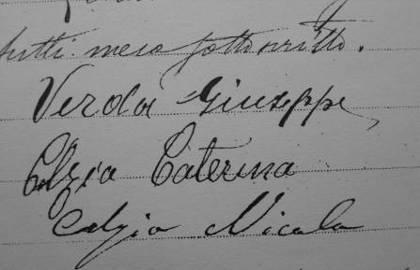 tutti meco sottoscritto.
Verda Giuseppe
Calzia Caterina
Calzia Nicola